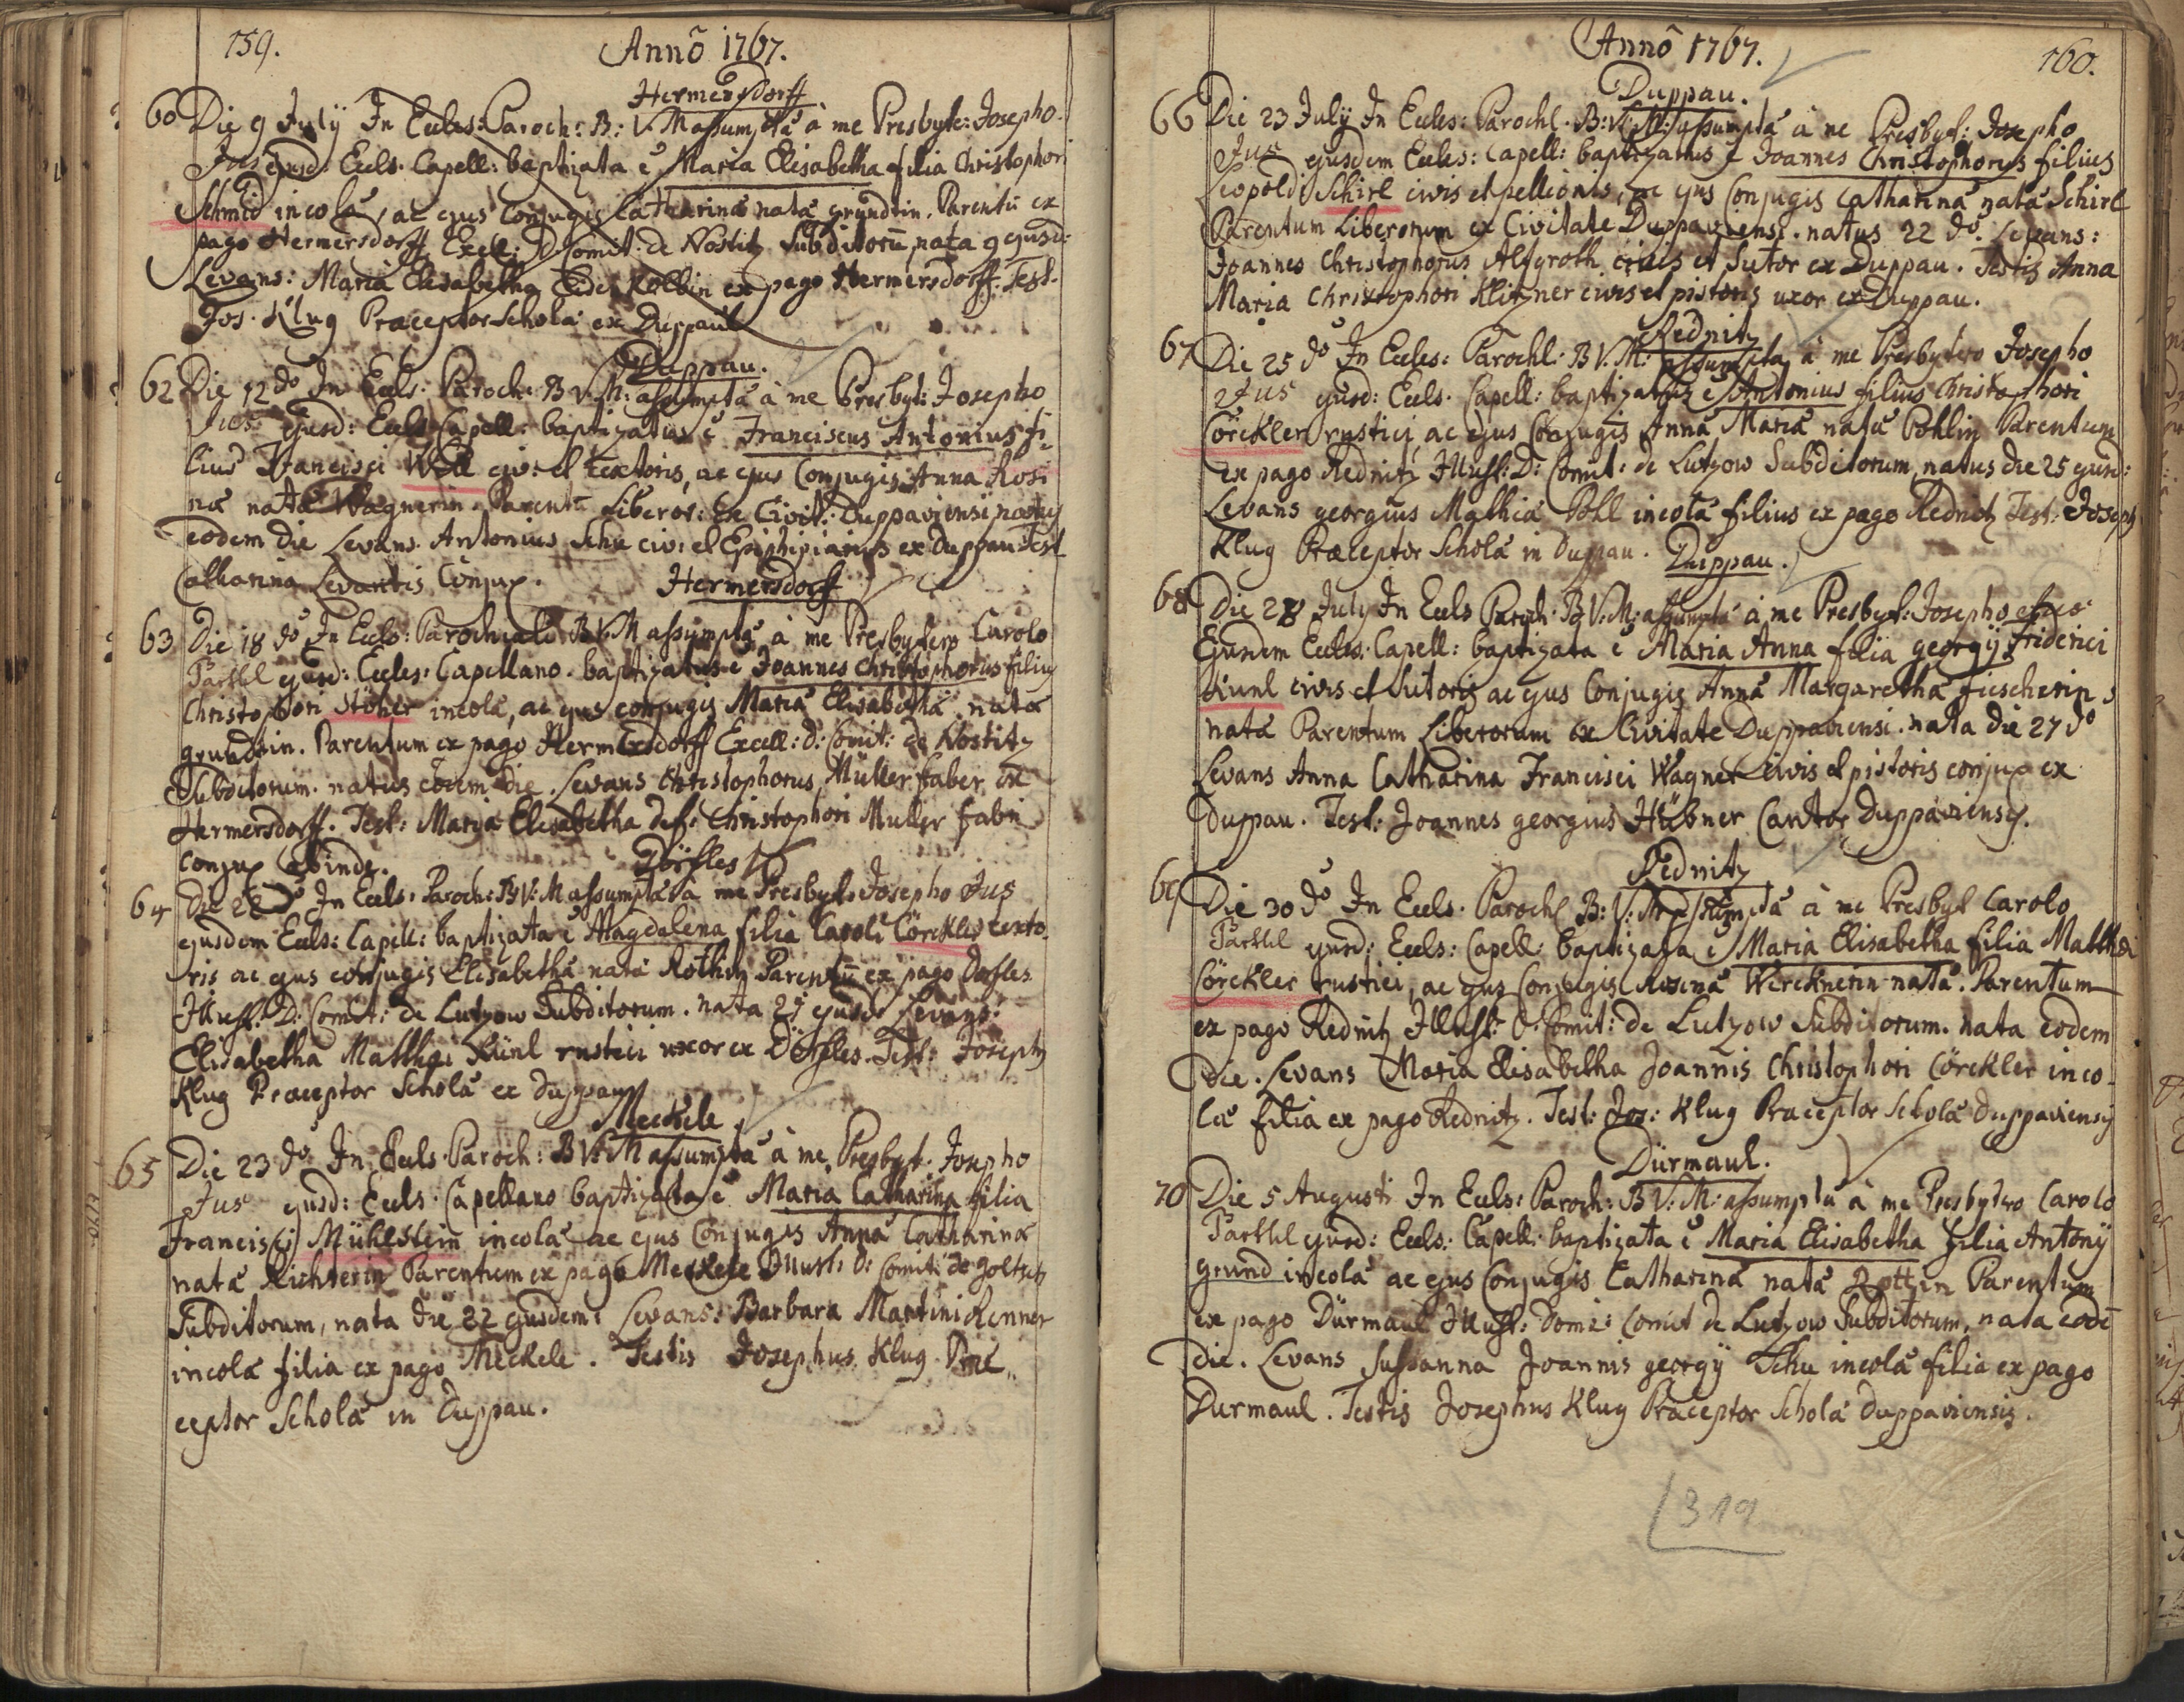 159.
Annô 1767.
Hermersdorff
60 Die 9 July In Eccles: Paroch: B: V. M assumptâ à me Presbyt: Josepho
Jus ejusd: Eccls. Capell: baptizata é Maria Elisabetha filia Christophori
Schmid incolâ, ac ejus Conjugis Catharinâ natâ grundtin. Parentū ex
pago Hermersdorff Excell: D Comit: de Nostitz Subditorū, nata 9 ejusd:
Levans: Maria Elisabetha Kolbin ex pago Hermersdorff. Test.
Jos. Klug Præceptor Scholâ ex Duppau
Duppau.
62 Die 12 dô In Eccls. Paroch. B V. M: assumptâ à me Presbyt: Josepho
Jus ejusd: Eccls Capell: baptizatus é Franciscus Antonius fi-
lius Francisci Will civ: et textoris, ac ejus Conjugis Anna Rosi
nâ natâ Wagnerin. Parentū Liberor: Ex Civit: Duppaviensi natus
eodem die Levans. Antonius Schu civ: et Ephippiarius ex Duppau Test
Catharina Levantis Conjux.
Hermersdorff
63 Die 18 dô In Eccls: Parochiali B V. M assumptâ à me Presbytero Carolo
Parthl ejusd: Eccles: Capellano. baptizatus é Joannes Christophorus filius
Christophori Stöher incolâ, ac ejus conjugis Mariâ Elisabethâ natâ
grundtin. Parentum ex pago Hermersdorff Excell: d: Comit: de Nostitz
Subditorum. natus eodem die. Levans Christophorus Müller faber ex
Hermersdorff. Test: Maria Elisabetha def: Christophori Muller fabri
conjux ibinde.
Dörfles
64 Die 22 dô In Eccls. Paroch: B V: M assumptâ à me Presbyt: Josepho Jus
ejusdem Eccls: Capell: baptizata é Magdalena filia Caroli Cörckler texto-
ris ac ejus conjugis Elisabethâ natâ Rothin Parentū ex pago Dörfles
Illust: D: Comit: de Lutzow Subditorum. nata 21 ejusd: Levans:
Elisabetha Matthæi Künl rustici uxor ex Dörfles. Test: Joseph
Klug Præceptor Scholâ ex Duppau
Meckele.
65 Die 23 dô In Eccls. Paroch: B V: M assumptâ à me Presbyt. Josepho
Jus ejusd: Eccls. Capellano baptizata é Maria Catharina filia
Francisci Mühlstein incolâ ac ejus Conjugis Annâ Catharinâ
natâ Richterin Parentum ex pago Meckele Illust: D: Comit: de Goltsch
Subditorum, nata die 22 ejusdem: Levans: Barbara Martini Renner
incolâ filia ex pago Meckele. Testis Josephus Klug Præ„
ceptor Scholâ in Duppau.
Annô 1767.
160.
Duppau.
66 Die 23 July In Eccles: Parochl. B: V: M: assumptâ à me Presbyt: Josepho
Jus ejusdem Eccles: Capell: baptizatus é Joannes Christophorus filius
Leopoldi Schirl civis et pellionis, ac ejus Conjugis Catharinâ natâ Schirl
Parentum Liberorum ex Civitate Duppaviensi. natus 22 dô. Levans:
Joannes Christophorus Altgroth civis et Sutor ex Duppau. Testis Anna
Maria Christophori Klitzner civis et pistoris uxor ex Duppau.
Rednitz
67 Die 25 dô In Eccles: Parochl: B V. M: assumpta à me Presbytero Josepho
Jus ejusd: Eccls. Capell: baptizatus é Antonius filius Christophori
Cörckler rustici, ac ejus Conjugis Annâ Mariâ natâ Pohlin Parentum
ex pago Rednitz Illust: D: Comit: de Lutzow Subditorum, natus die 25 ejusd:
Levans georgius Mathiâ Pohl incolâ filius ex pago Rednitz Test: Joseph
Klug Præceptor Scholâ in Duppau.
Duppau.
68 Die 28 July In Eccls Paroch: B V: M: assumptâ à me Presbyt: Josepho Jus
Ejusdem Eccles: Capell: baptizata é Maria Anna filia georgÿ friderici
Kunl civis et Sutoris ac ejus Conjugis Annâ Margarethâ fiescherin
natâ Parentum Liberorum ex Civitate Duppaviensi. nata die 27 dô
Levans Anna Catharina Francisci Wagner civis et pistoris conjux ex
Duppau. Test: Joannes georgius Hübner Cantor Duppaviensis.
Rednitz
69 Die 30 dô In Eccls. Parochl B: V: M assumptâ à me Presbyt Carolo
Parthl ejusd: Eccls: Capell: baptizata é Maria Elisabetha filia Matthæi
Cörckler rustici, ac ejus Conjugis Rosinâ Wercknerin natâ. Parentum
ex pago Rednitz Illust: D: Comit: de Lutzow Subditorum. nata eodem
die. Levans Maria Elisabetha Joannis Christophori Cörckler inco-
lâ filia ex pago Rednitz. Test: Jos: Klug Præceptor Scholâ Duppaviensis
Dürmaul.
70 Die 5 Augusti In Eccls: Paroch: B V: M: assumptâ à me Presbytero Carolo
Parthl ejusd: Eccls: Capell: baptizata é Maria Elisabetha filia Antonÿ
grund incolâ ac ejus Conjugis Catharinâ natâ Rottin Parentum
ex pago Dürmaul Illust: Domi: Comit de Lutzow Subditorum, nata eodē
die. Levans Sussanna Joannis georgÿ Schu incolâ filia ex pago
Durmaul. Testis Josephus Klug Præceptor Scholâ Duppaviensis.
319